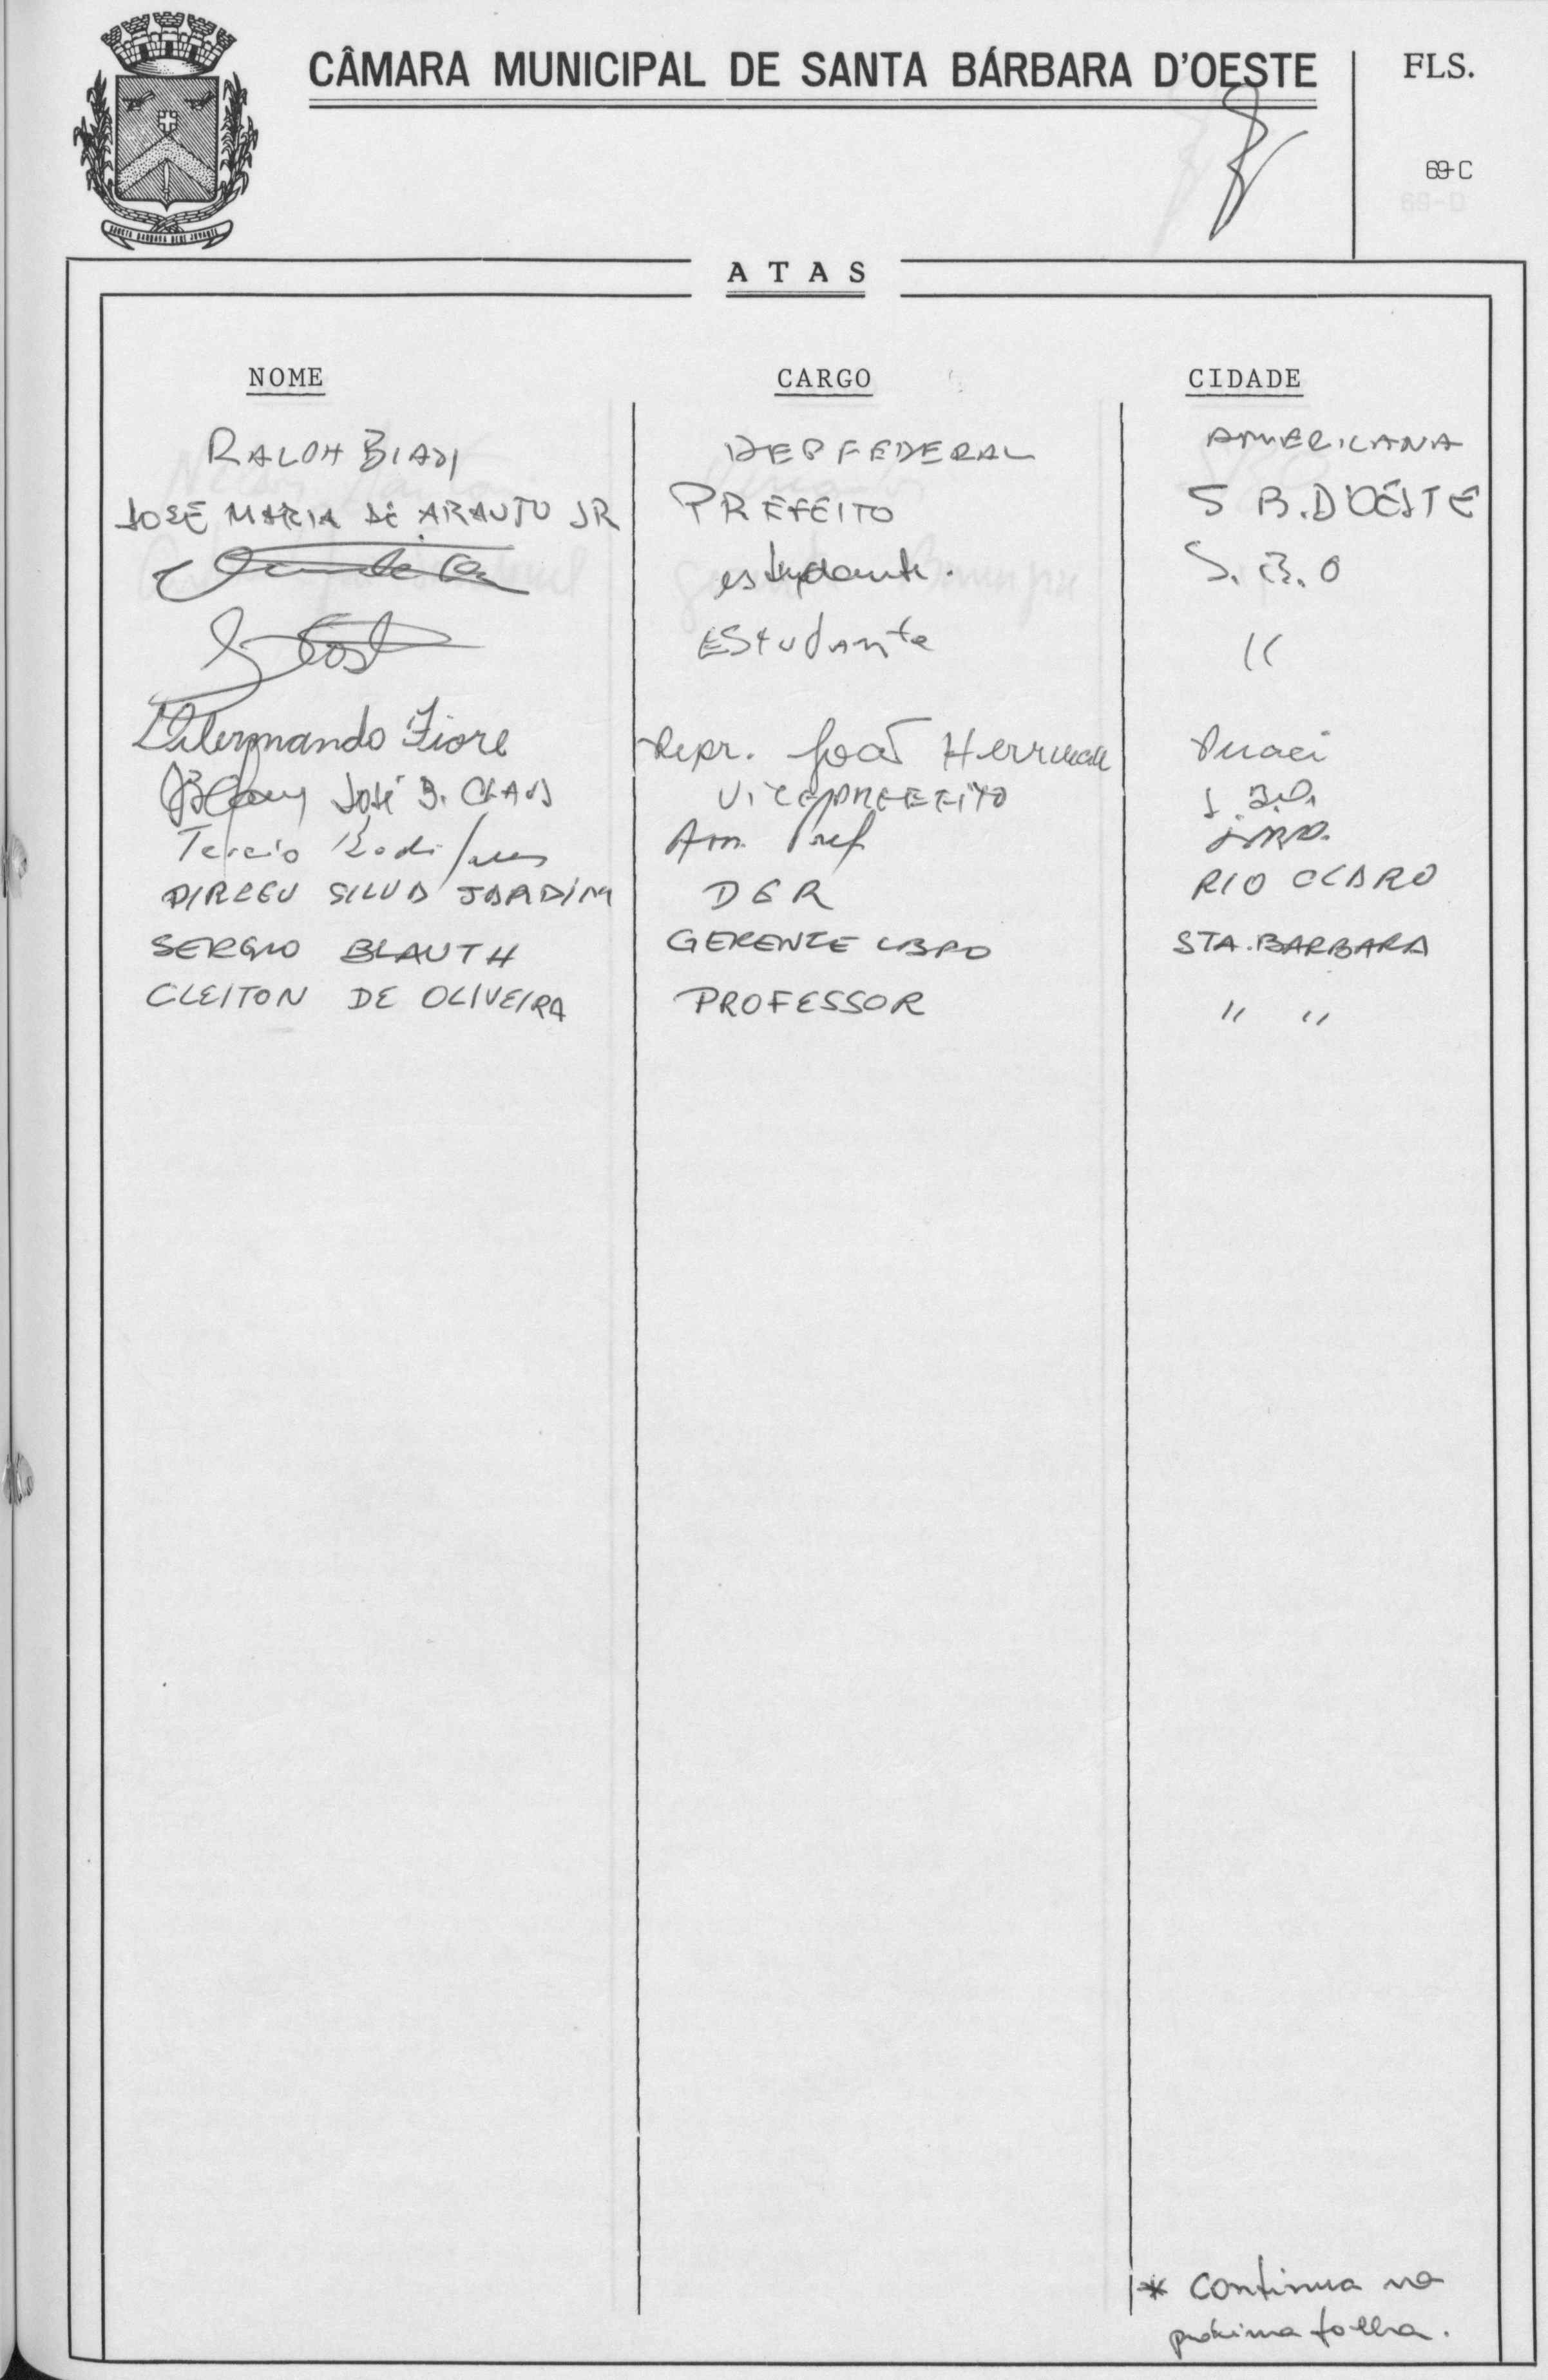 CÂMARA MUNICIPAL DE SANTA BÁRBARA D'OESTE
FLS.
69-C
SANCTA BARBARA
ATAS
NOME CARGO CIDADE
RALPH BIASI DEP FEDERAL AMERICANA
JOSÉ MARIA DE ARAUJO JR PREFEITO S B. D'OESTE
estudante. S. B. O
EStudante "
Dilermando Fiore Repr. João Herrman
José B. CLAUS VICEPREFEITO S. B. O.
Tercio Ass. Pref S.B.O.
DIRCEU SILVA JARDIM DER RIO CLARO
SERGIO BLAUTH GERENTE STA. BARBARA
CLEITON DE OLIVEIRA PROFESSOR " "
* Continua na
próxima folha.